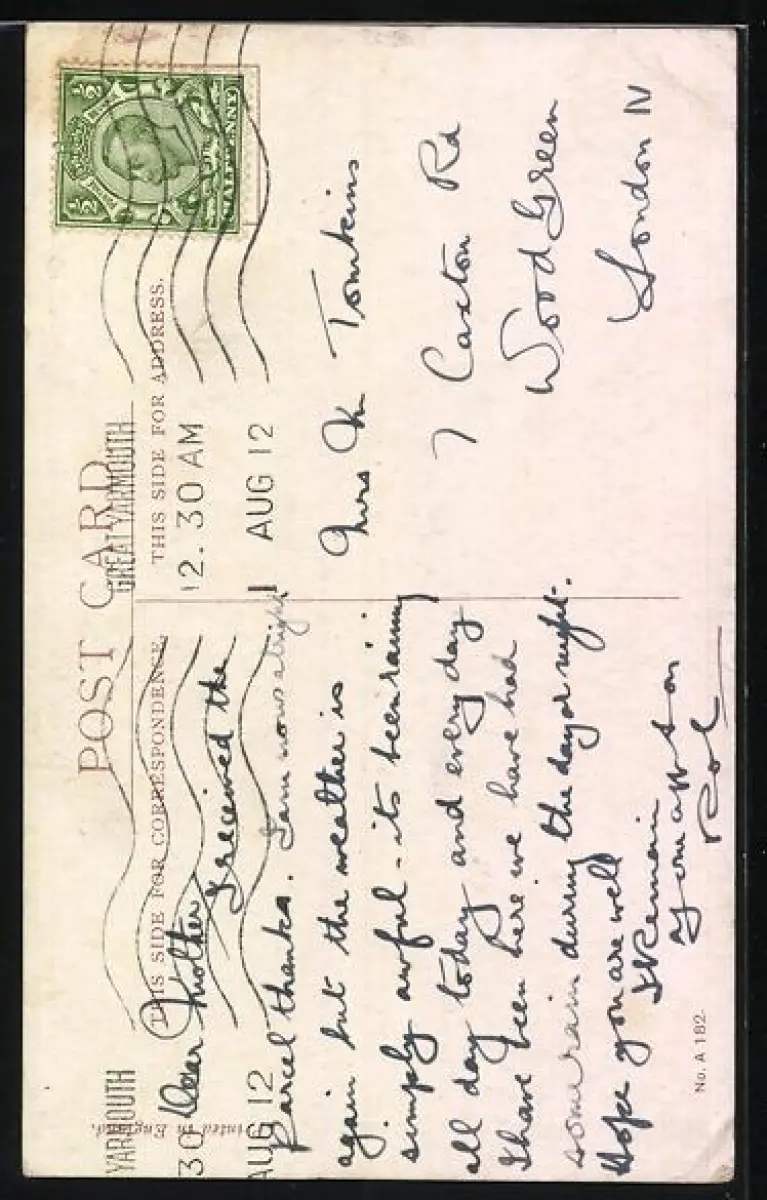 POST CARD
THIS SIDE FOR CORRESPONDENCE.
THIS SIDE FOR ADDRESS.
YARMOUTH
30
AUG 12
GREAT YARMOUTH
12.30 AM
1 AUG 12
½ ½
HALFPENNY
Dear Mother I received the
Parcel thanks. I am now alright
again but the weather is
simply awful - its been raining
all day today and every day
I have been here we have had
some rain during the day or night.
Hope you are well
I Remain
your afft son
Rol
Mrs Tomkins
7 Caxton Rd
Wood Green
London N
Printed in England.
No. A 182.